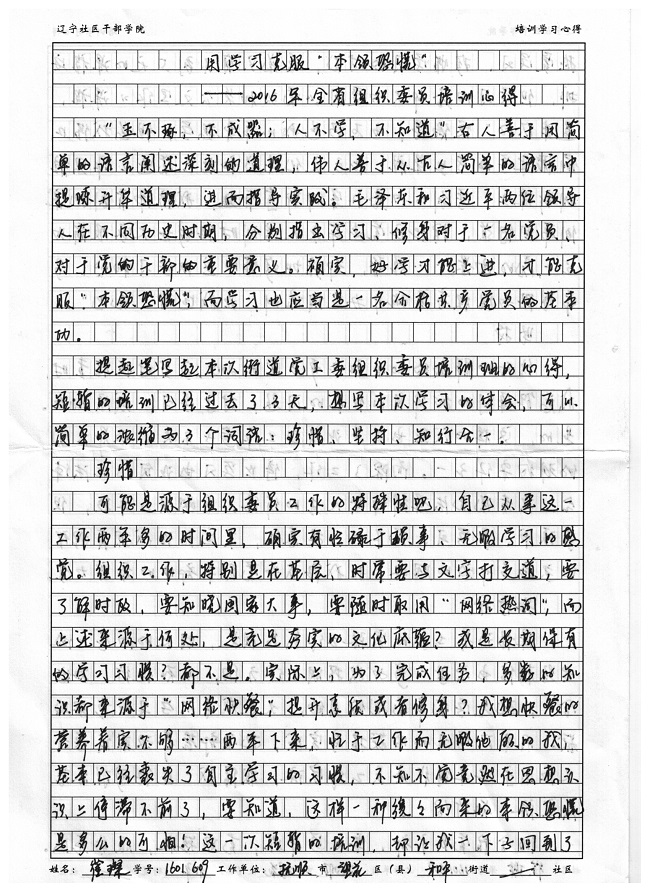 辽宁社区干部学院 培训学习心得
用学习克服“本领恐慌”
——2016年全省组织委员培训心得
“玉不琢,不成器;人不学,不知道”古人善于用简
单的语言阐述深刻的道理,伟人善于从古人简单的语言中
提炼升华道理,进而指导实践。毛泽东和习近平两位领导
人在不同历史时期,分别指出学习、修身对于一名党员、
对于党的干部的重要意义。确实,好学才能上进,才能克
服“本领恐慌”,而学习也应当是一名合格共产党员的基本
功。
提起笔写起本次街道党工委组织委员培训班的心得,
短暂的培训已经过去了3天,想思本次学习的体会,可以
简单的浓缩为3个词语:珍惜、坚持、知行合一。
珍惜
可能是源于组织委员工作的特殊性吧,自己从事这一
工作两年多的时间里,确实有忙碌于琐事、无暇学习的感
觉。组织工作,特别是在基层,时常要与文字打交道,要
了解时政,要知晓国家大事,要随时取用“网络热词”,而
上述来源于何处,是充足夯实的文化底蕴?或是长期保有
的学习习惯?都不是。实际上,为了完成任务,多数的知
识都来源于“网络快餐”,提升素质或者修身?我想快餐的
营养着实不够……两年下来,忙于工作而无暇他顾的我,
基本已经丧失了自主学习的习惯,不知不觉竟然在思想认
识上停滞不前了,要知道,这样一种缓缓而来的本领恐慌
是多么的可怕。这一次短暂的培训,却让我一下子回到了
姓名:崔璨 学号:1601609 工作单位:抚顺 市 望花 区(县) 和平 街道 社区